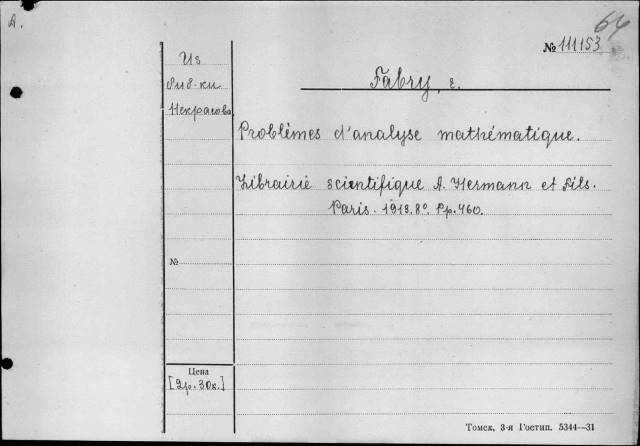 A.
64
№ 111153
Из
биб-ки
Некрасова
Fabry, E.
Problèmes d'analyse mathématique.
Librairie scientifique A. Hermann et Fils.
Paris. 1913. 8°. Pp. 460.
№
Цена
[2р.-30к.]
Томск, 3-я Гостип. 5344—31